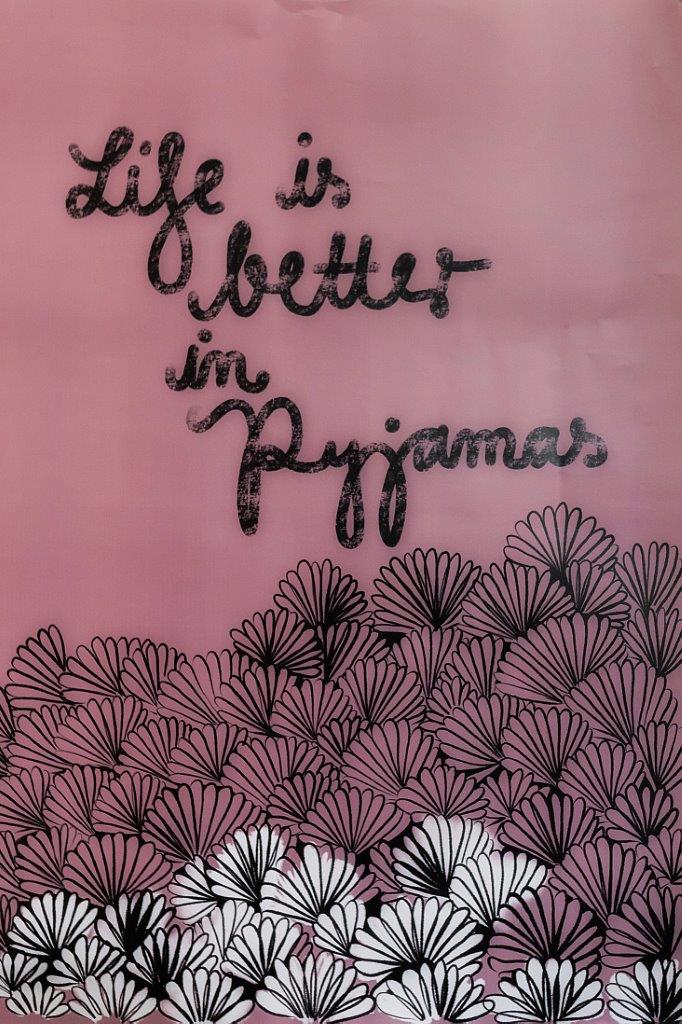 Life is
better
in
Pyjamas